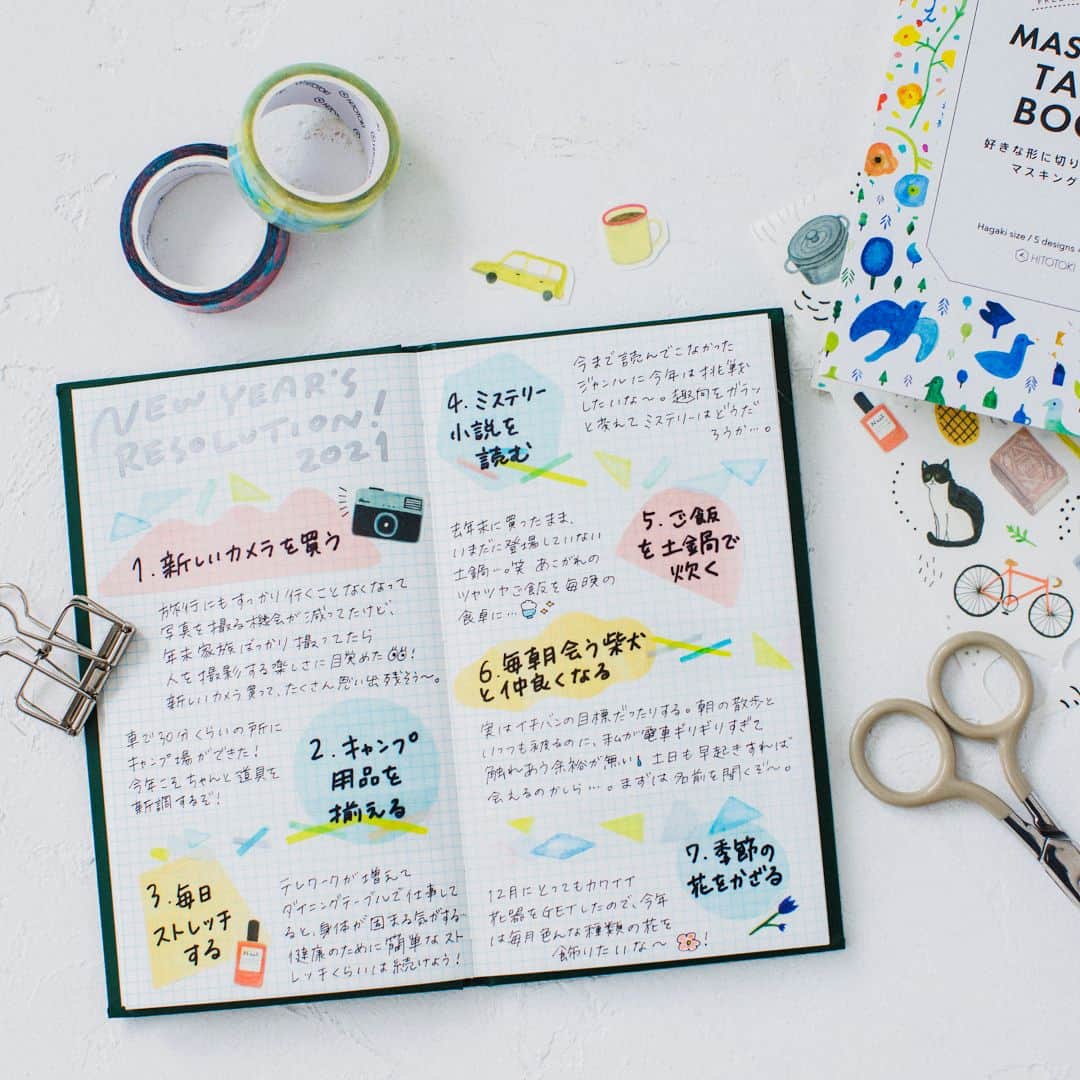 NEW YEAR'S
RESOLUTION!
2021
1. 新しいカメラを買う
旅行にもすっかり行くことなくなって
写真を撮る機会が減ってたけど、
年末家族ばっかり撮ってたら
人を撮影する楽しさに目覚めた!
新しいカメラ買って、たくさん思い出残そう〜。
車で30分くらいの所に
キャンプ場ができた!
今年こそちゃんと道具を
新調するぞ!
2. キャンプ
用品を
揃える
3. 毎日
ストレッチ
する
テレワークが増えて
ダイニングテーブルで仕事して
ると、身体が固まる気がする…
健康のために簡単なスト
レッチくらいは続けよう!
4. ミステリー
小説を
読む
今まで読んでこなかった
ジャンルに今年は挑戦
したいな〜。趣向をガラッ
と変えてミステリーはどうだ
ろうか…。
去年末に買ったまま、
いまだに登場していない
土鍋…。笑 あこがれの
ツヤツヤご飯を毎晩の
食卓に…
5. ご飯
を土鍋で
炊く
6. 毎朝会う柴犬
と仲良くなる
実はイチバンの目標だったりする。朝の散歩と
いつも被るのに、私が電車ギリギリすぎて
触れあう余裕が無い 土日も早起きすれば
会えるのかしら…。まずは名前を聞くぞ〜。
7. 季節の
花をかざる
12月にとってもカワイイ
花器をGETしたので、今年
は毎月色んな種類の花を
飾りたいな〜!
HITOTOKI
MAS
TA
BOO
好きな形に切り
マスキング
Hagaki size / 5 designs
HITOTOKI